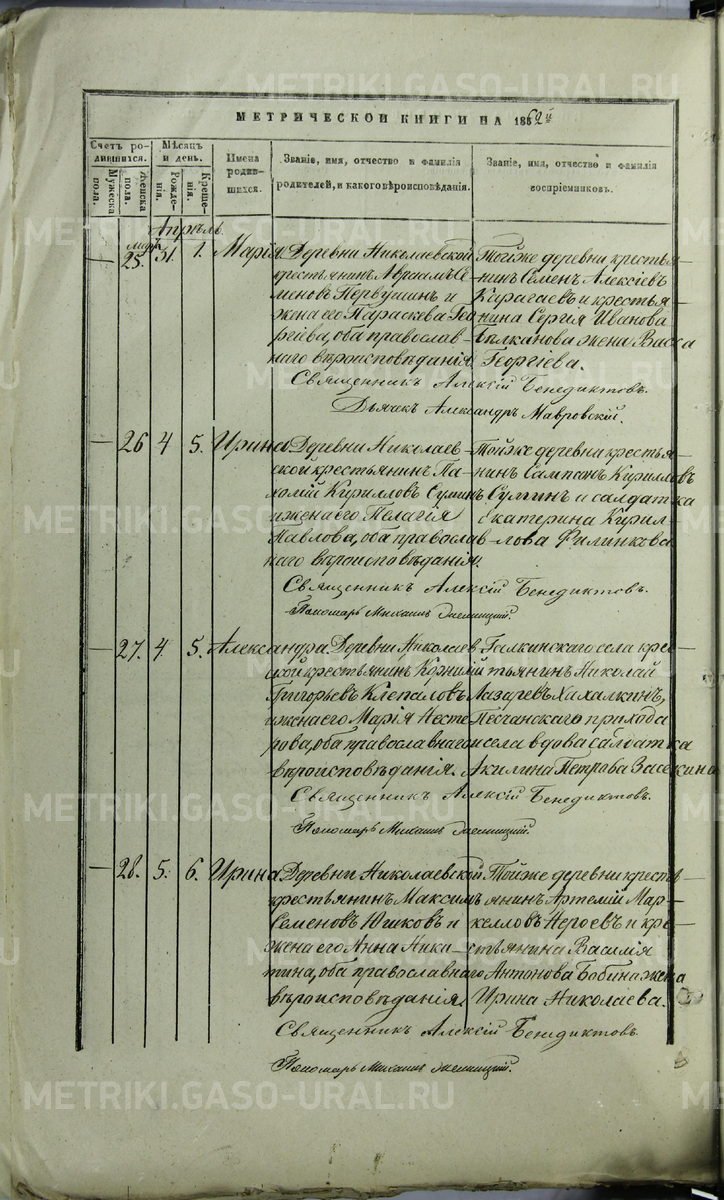 МЕТРИЧЕСКОЙ КНИГИ НА 1862й
Счетъ родившихся.
Мужеска пола.
Женска пола.
Мѣсяцъ и день.
Рожденія.
Крещенія.
Имена родившихся.
Званіе, имя, отчество и фамилія родителей, и какого вѣроисповѣданія.
Званіе, имя, отчество и фамилія воспріемниковъ.
Апрѣль
мар.
25. 31. 1. Марія
Деревни Николаевской
крестьянинъ Авраамъ Се-
меновъ Первушинъ и
жена его Параскева Геор
гіева, оба православ-
наго вѣроисповѣданія.
Тойже деревни крестья-
нинъ Семенъ Алексіевъ
Карагаевъ и крестья-
нина Сергія Иванова
Бѣлканова жена Васса
Георгіева.
Священникъ Алексій Бенедиктовъ.
Дьячокъ Александръ Мавровскій.
26 4 5. Ирина
Деревни Николаев-
ской крестьянинъ Па-
хомій Кирилловъ Суминъ
и жена его Пелагія
Павлова, оба православ-
наго вѣроисповѣданія.
Тойже деревни крестья-
нинъ Кирилловъ
Суминъ и салдатка
Екатерина Кирил-
лова Филинкова
Священникъ Алексій Бенедиктовъ.
Пономарь Михаилъ
27. 4 5. Александра.
Деревни Николаев
ской крестьянинъ Корнилій
Григорьевъ Клепаловъ
и жена его Марія Несте
рова, оба православнаго
вѣроисповѣданія.
Галкинскаго села крес-
тьянинъ Николай
Лазаревъ Хахалкинъ,
Песчанскаго прихода
и села вдова салдатка
Акилина Петрова Засекина
Священникъ Алексій Бенедиктовъ.
Пономарь Михаилъ
28. 5. 6. Ирина.
Деревни Николаевской
крестьянинъ Максимъ
Семеновъ Юшковъ и
жена его Анна Ники-
тина, оба православнаго
вѣроисповѣданія.
Тойже деревни кресть-
янинъ Артемій Мар-
келловъ Нероевъ и кре-
стьянина Василія
Антонова Бобина жена
Ирина Николаева.
Священникъ Алексій Бенедиктовъ.
Пономарь Михаилъ
METRIKI.GASO-URAL.RU